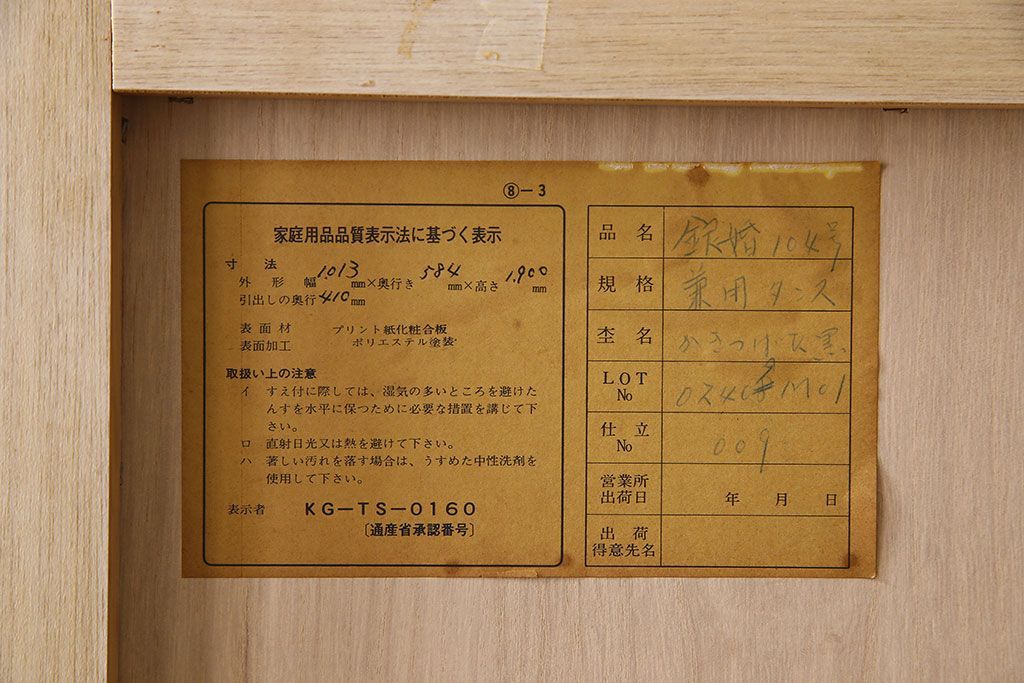 ⑧-3
家庭用品品質表示法に基づく表示
寸法
外形 幅 1.013 mm×奥行き 584 mm×高さ 1.900 mm
引出しの奥行 410 mm
表面材 プリント紙化粧合板
表面加工 ポリエステル塗装
取扱い上の注意
イ すえ付に際しては、湿気の多いところを避けた
んすを水平に保つために必要な措置を講じて下
さい。
ロ 直射日光又は熱を避けて下さい。
ハ 著しい汚れを落す場合は、うすめた中性洗剤を
使用して下さい。
表示者 KG-TS-0160
〔通産省承認番号〕
品名 銀婚104号
規格 兼用タンス
杢名
LOT
No
仕立
No 009
営業所
出荷日 年 月 日
出荷
得意先名